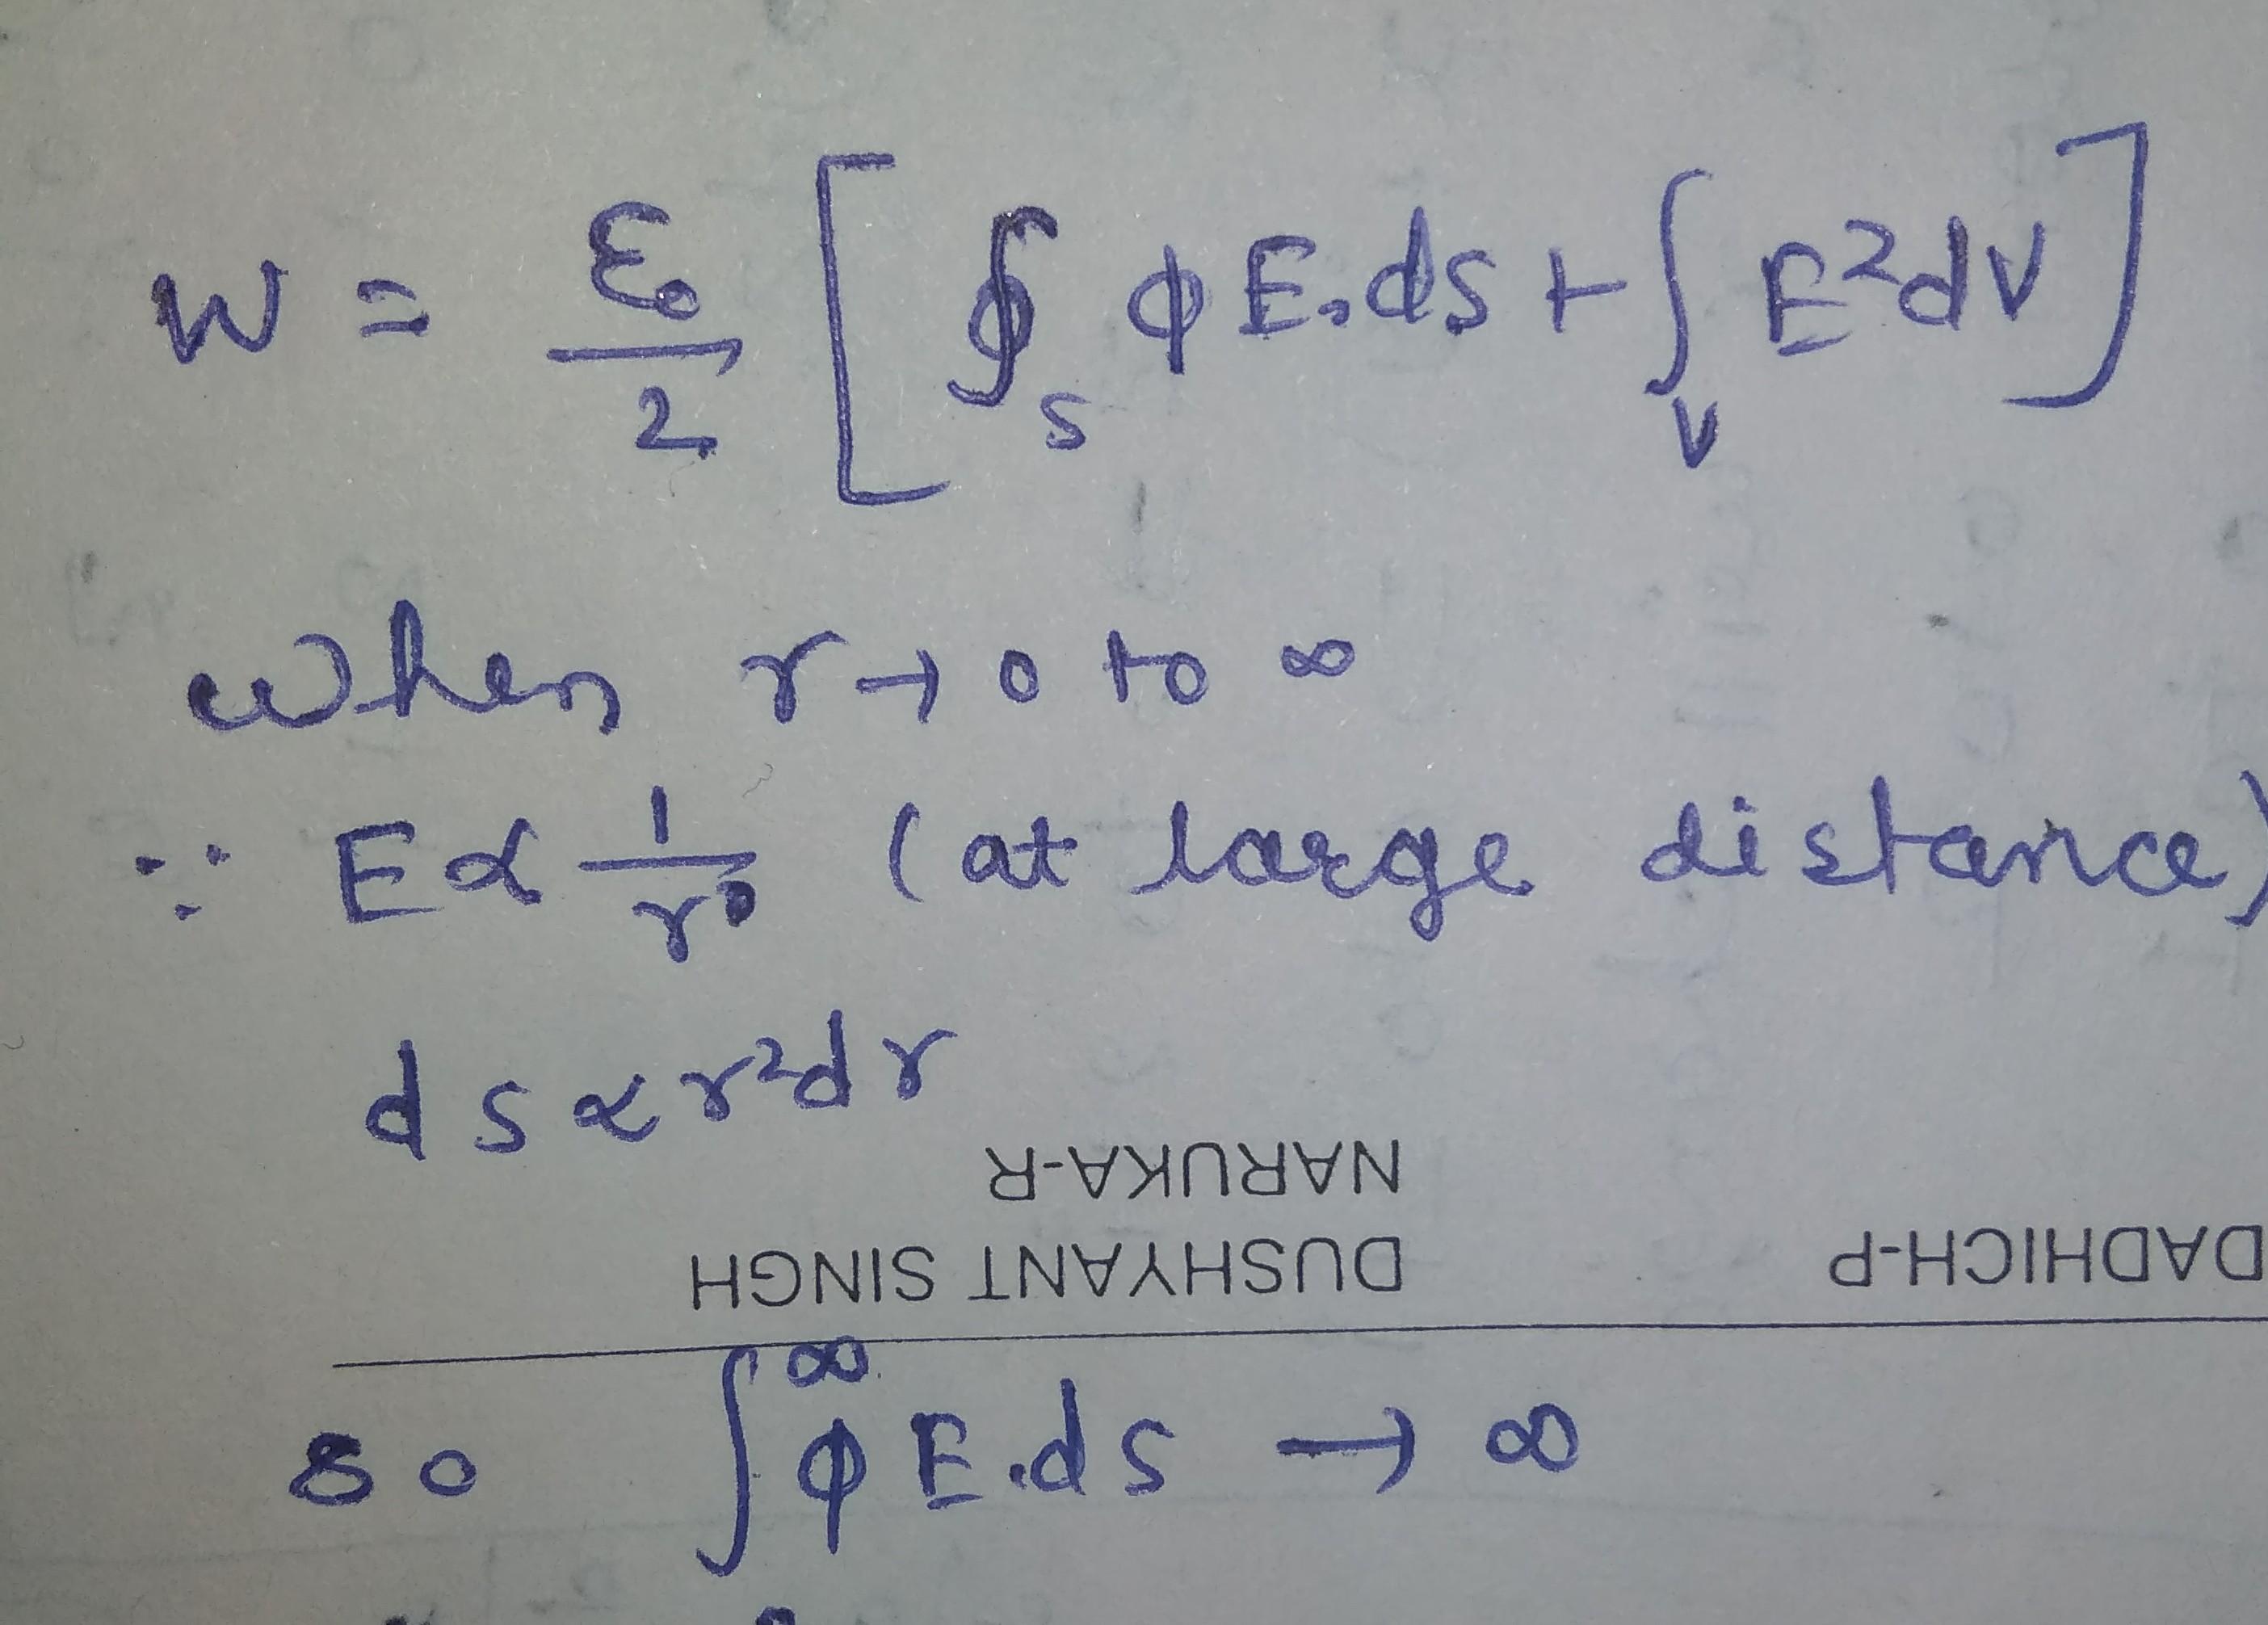 W = ε₀/2 [∮_S ϕ E.ds + ∫_V E²dV]
when r→0 to ∞
∵ E∝ 1/r (at large distance)
ds∝r²dr
NARUKA-R
DUSHYANT SINGH
DADHICH-P
so ∫^∞ ϕ E.ds → ∞